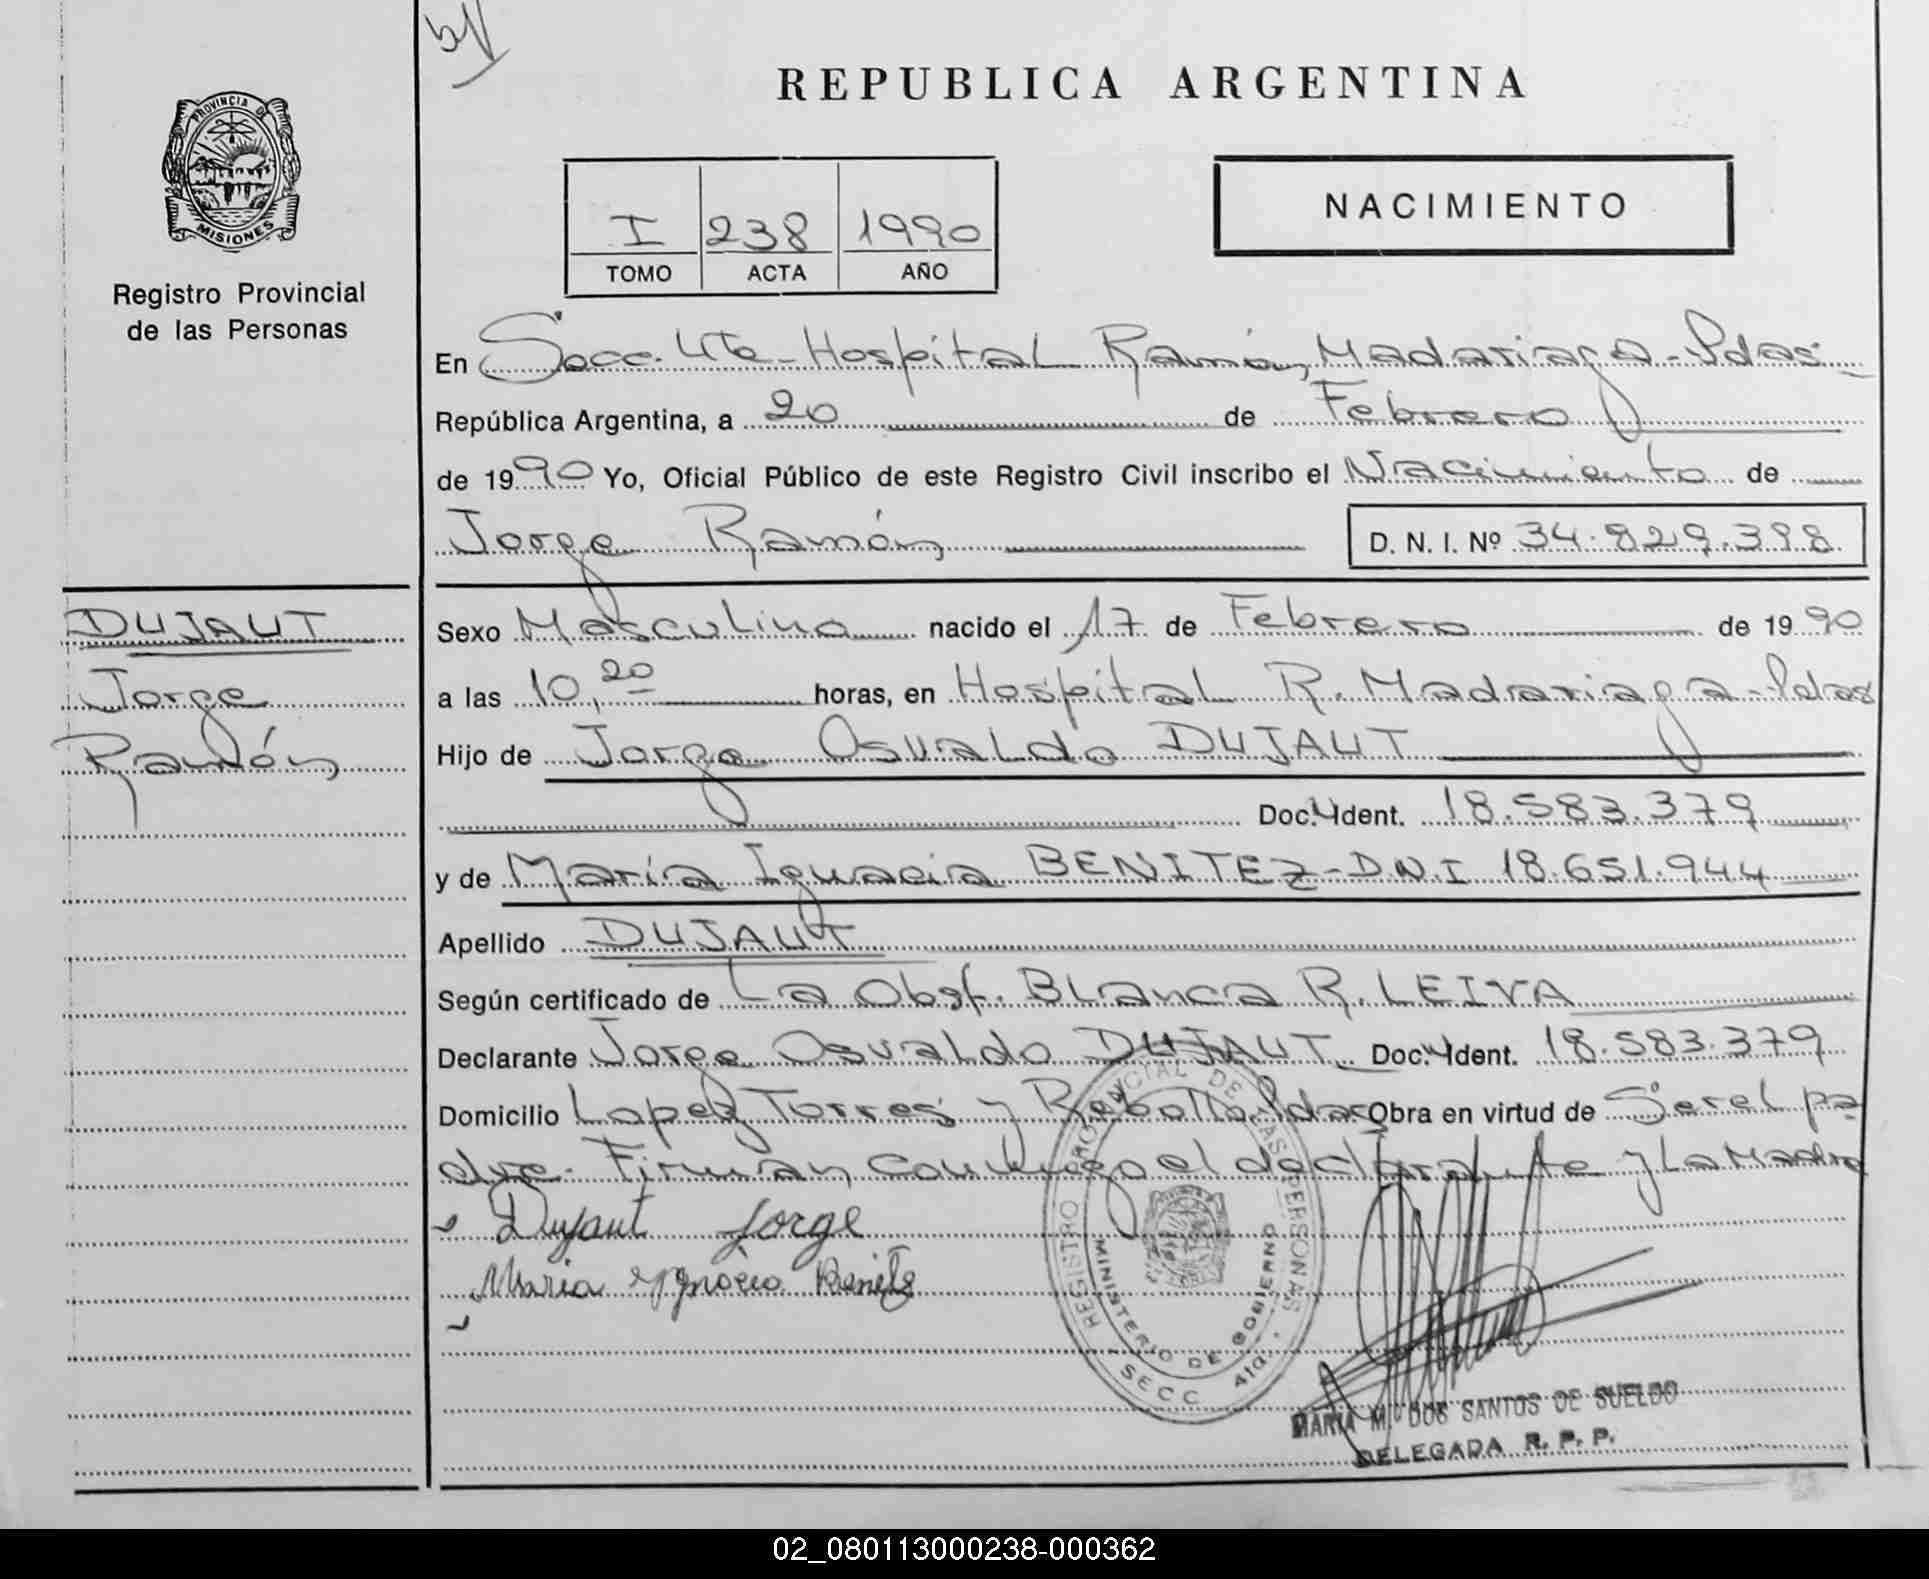 REPUBLICA ARGENTINA
PROVINCIA DE
MISIONES
Registro Provincial
de las Personas
I 238 1990
TOMO ACTA AÑO
NACIMIENTO
En Secc. 4ta - Hospital Ramón Madariaga - Pdas
República Argentina, a 20 de Febrero
de 1990 Yo, Oficial Público de este Registro Civil inscribo el Nacimiento de
Jorge Ramón D. N. I. Nº 34.829.398
DUJAUT
Jorge
Ramón
Sexo Masculino nacido el 17 de Febrero de 1990
a las 10,20 horas, en Hospital R. Madariaga - Pdas
Hijo de Jorge Osvaldo DUJAUT
Doc. Ident. 18.583.379
y de María Ignacia BENITEZ - D.N.I 18.651.944
Apellido DUJAUT
Según certificado de La Obst. Blanca R. LEIVA
Declarante Jorge Osvaldo DUJAUT Doc. Ident. 18.583.379
Domicilio Lopez Torres y Pdas Obra en virtud de Ser el pa
dre - Firman conmigo el declarante y La Madre
Dujaut Jorge
Maria Ygnacia Benitez
REGISTRO PROVINCIAL DE LAS PERSONAS
MINISTERIO DE GOBIERNO
SECC 4ta.
MARIA M. DOS SANTOS DE SUELDO
DELEGADA R. P. P.
02_080113000238-000362